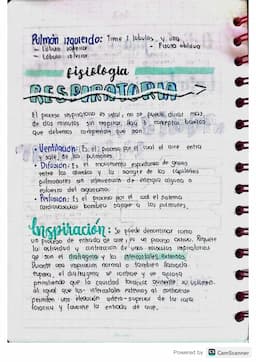 Pulmón izquierdo: Tiene 2 lóbulos y una
- Lóbulo superior - Fisura oblicua
- Lóbulo inferior
fisiología
RESPIRATORIA
El proceso respiratorio es vital, no se puede durar más
de dos minutos sin respirar. Hay 3 conceptos básicos
que debemos comprender que son:
• Ventilación: Es el proceso por el cual el aire entra
y sale de los pulmones.
• Difusión: Es el movimiento espontáneo de gases
entre los alvéolos y la sangre de los capilares
pulmonares sin intervención de energía alguna o
esfuerzo del organismo.
• Perfusión: Es el proceso por el cual el sistema
cardiovascular bombea sangre a los pulmones.
Inspiración: Se puede denominar como
un proceso de entrada de aire, es un proceso activo. Requiere
la actividad y contracción de unos músculos respiratorios
que son el diafragma y los intercostales externos.
Durante una inspiración normal o también llamada
el diafragma se contrae y se
permitiendo que la cavidad torácica aumente su volumen
al igual que los intercostales externos al contraerse
permiten una elevación antero-superior de la caja
torácica y favorece la entrada de aire.
Powered by CamScanner